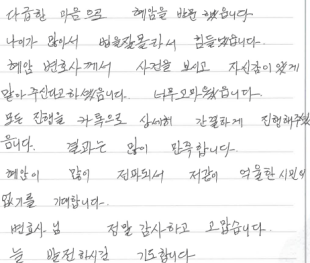 다급한 마음으로 혜암을 방문 했습니다
나이가 많아서 법을 잘몰라서 힘들었습니다
혜암 변호사께서 사건을 보시고 자신감이 있게
맡아 주신다고 하셨습니다. 너무 고마웠습니다
모든 진행을 카톡으로 상세히 간결하게 진행해주었
습니다. 결과는 많이 만족합니다.
혜암이 많이 전파되서 저같이 억울한 시민이
없기를 기대합니다.
변호사 님 정말 감사하고 고맙습니다
늘 발전하시길 기도합니다